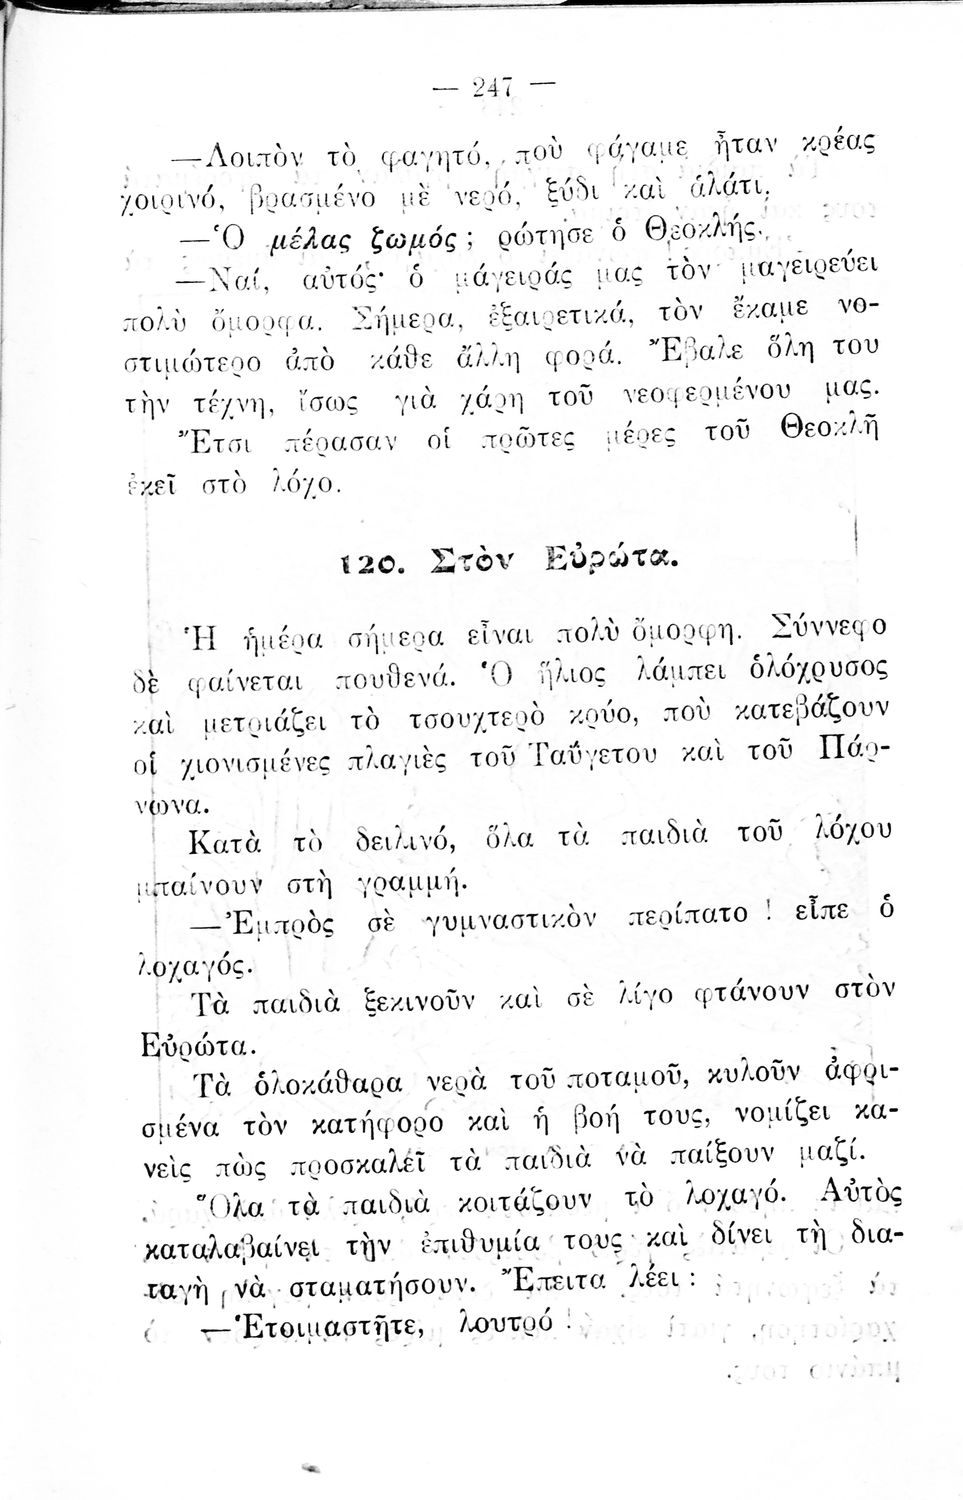 — 247 —
—Λοιπὸν τὸ φαγητό, ποὺ φάγαμε ἦταν κρέας
χοιρινό, βρασμένο μὲ νερό, ξύδι καὶ ἁλάτι.
—Ὁ μέλας ζωμός ; ρώτησε ὁ Θεοκλής.
—Ναί, αὐτός· ὁ μάγειράς μας τὸν μαγειρεύει
πολὺ ὄμορφα. Σήμερα, ἐξαιρετικά, τὸν ἔκαμε νο-
στιμώτερο ἀπὸ κάθε ἄλλη φορά. Ἔβαλε ὅλη του
τὴν τέχνη, ἴσως γιὰ χάρη τοῦ νεοφερμένου μας.
Ἔτσι πέρασαν οἱ πρῶτες μέρες τοῦ Θεοκλῆ
ἐκεῖ στὸ λόχο.
120. Στὸν Εὐρώτα.
Ἡ ἡμέρα σήμερα εἶναι πολὺ ὄμορφη. Σύννεφο
δὲ φαίνεται πουθενά. Ὁ ἥλιος λάμπει ὁλόχρυσος
καὶ μετριάζει τὸ τσουχτερὸ κρύο, ποὺ κατεβάζουν
οἱ χιονισμένες πλαγιὲς τοῦ Ταΰγετου καὶ τοῦ Πάρ-
νωνα.
Κατὰ τὸ δειλινό, ὅλα τὰ παιδιὰ τοῦ λόχου
μπαίνουν στὴ γραμμή.
—Ἐμπρὸς σὲ γυμναστικὸν περίπατο ! εἶπε ὁ
λοχαγός.
Τὰ παιδιὰ ξεκινοῦν καὶ σὲ λίγο φτάνουν στὸν
Εὐρώτα.
Τὰ ὁλοκάθαρα νερὰ τοῦ ποταμοῦ, κυλοῦν ἀφρι-
σμένα τὸν κατήφορο καὶ ἡ βοή τους, νομίζει κα-
νεὶς πὼς προσκαλεῖ τὰ παιδιὰ νὰ παίξουν μαζί.
Ὅλα τὰ παιδιὰ κοιτάζουν τὸ λοχαγό. Αὐτὸς
καταλαβαίνει τὴν ἐπιθυμία τους καὶ δίνει τὴ δια-
ταγὴ νὰ σταματήσουν. Ἔπειτα λέει :
—Ἑτοιμαστῆτε, λουτρό !